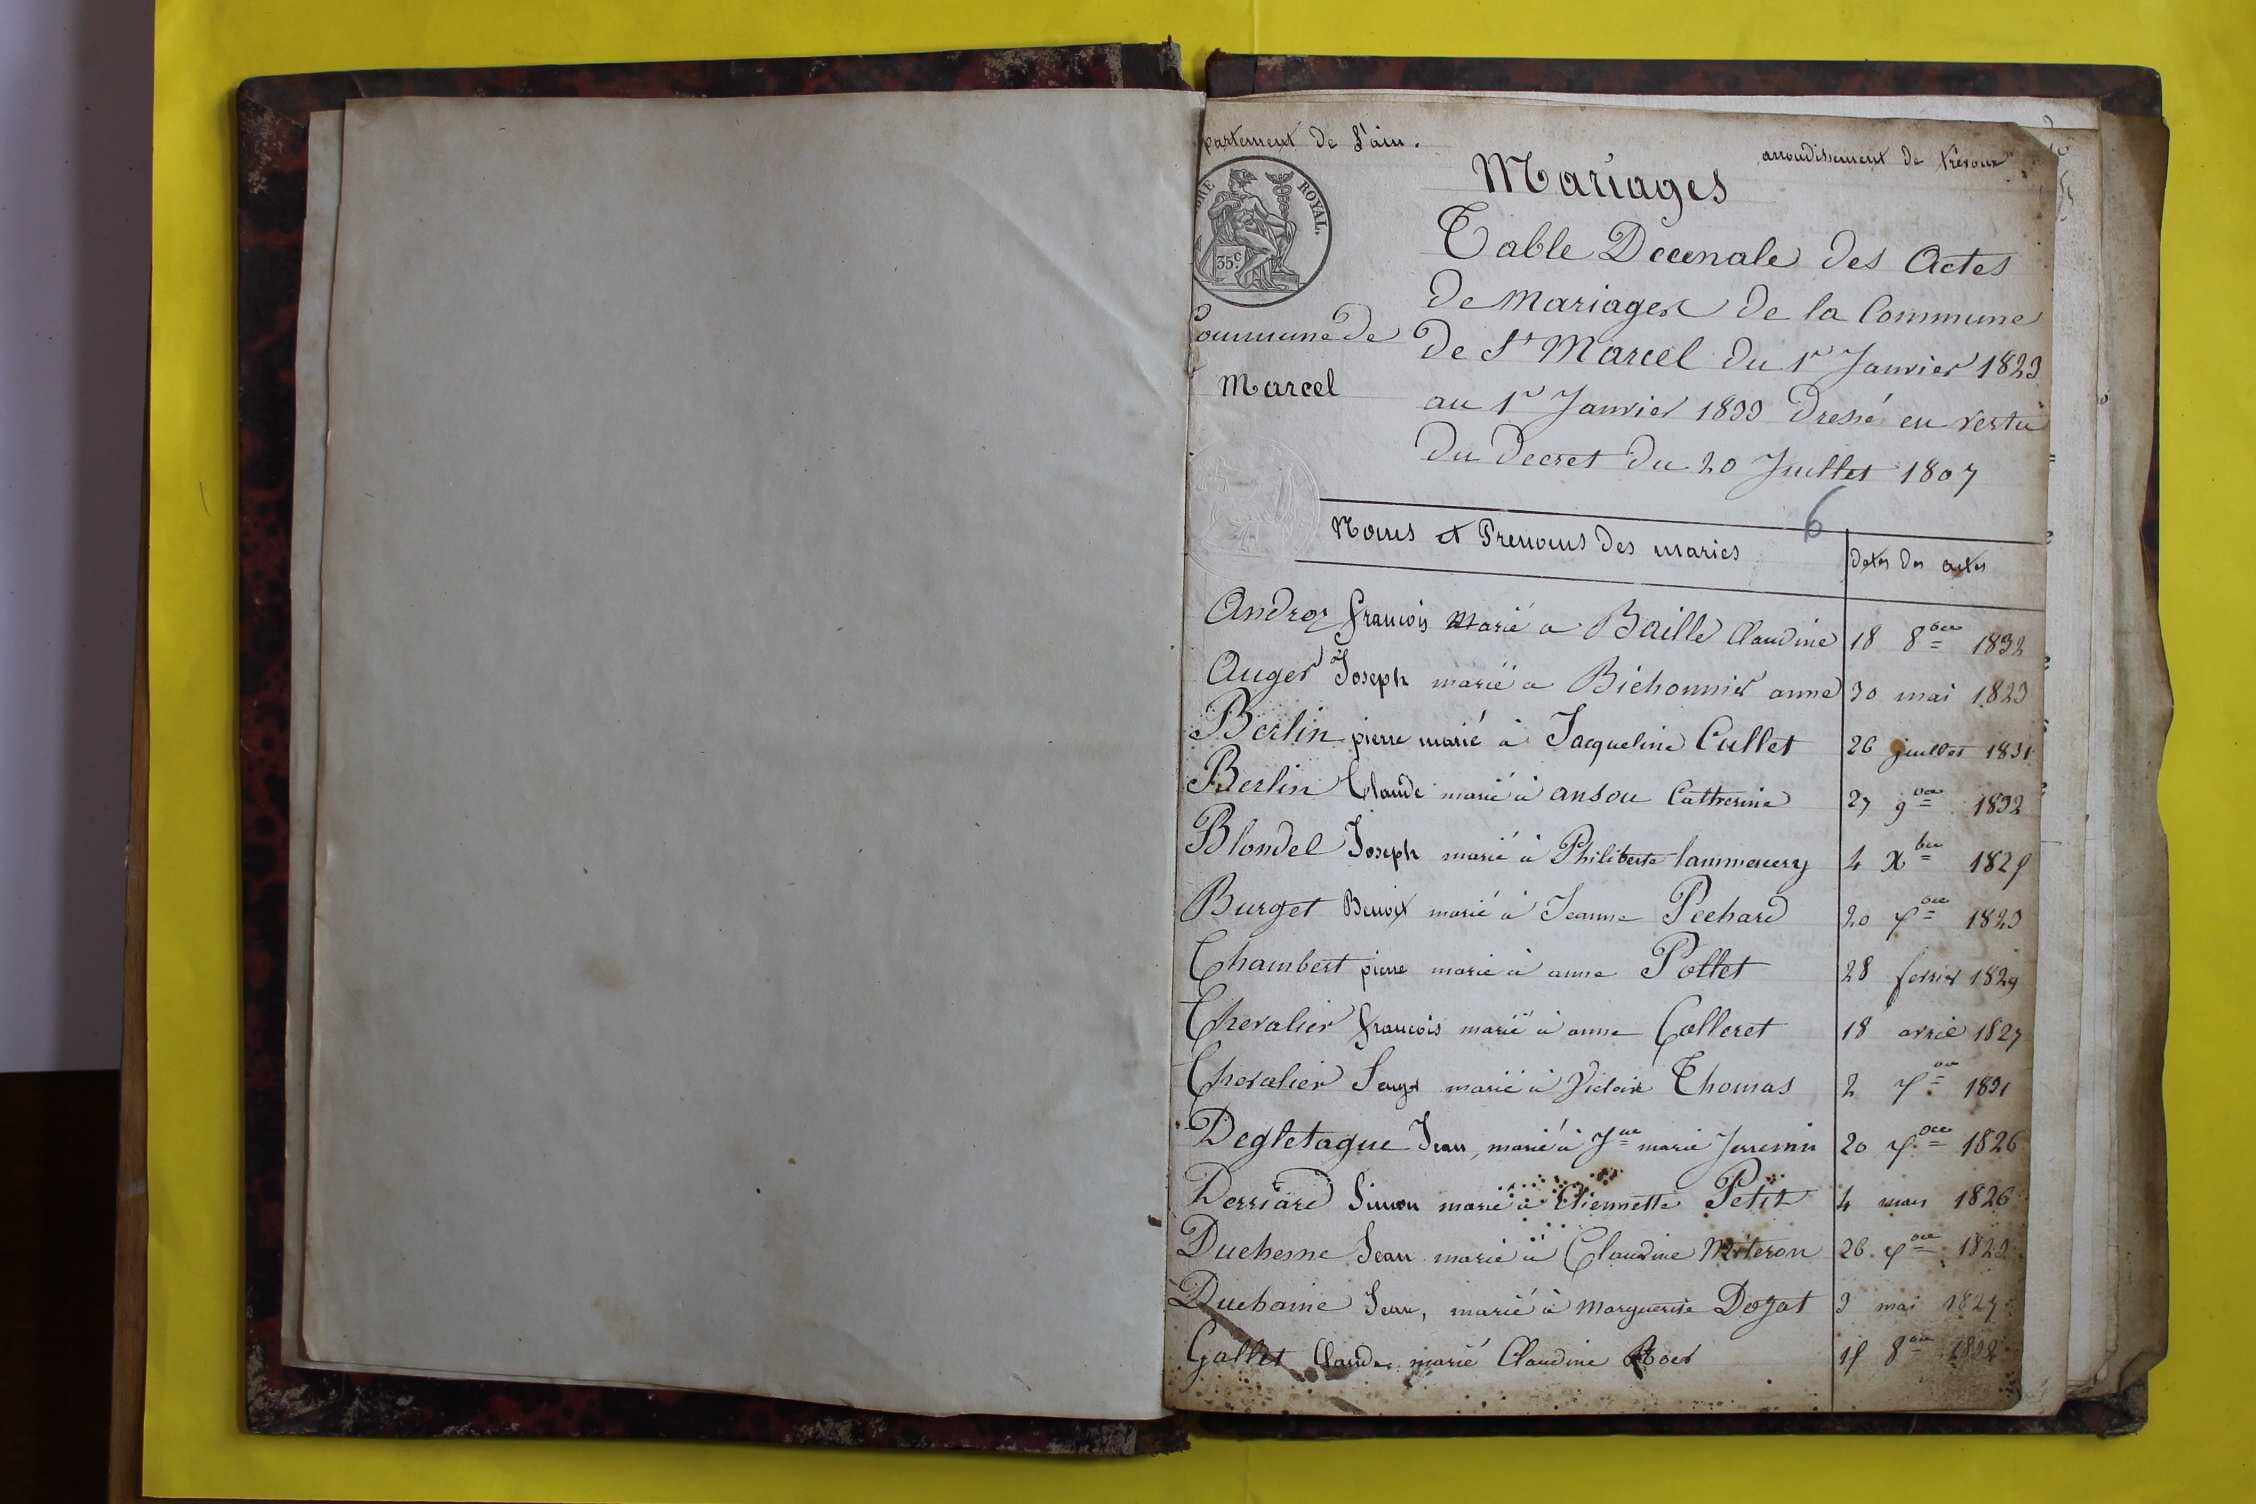 partement de L'ain.
arrondissement de trévoux
BRE ROYAL.
35c
Mariages
Table Decenale des Actes
de Mariages de la Commune
De St Marcel du 1r Janvier 1823
au 1r Janvier 1833 Dressé en vertu
du Decret du 20 Juillet 1807
Commune De
Marcel
6
Noms et Prenoms des mariés
Dates des actes
Andros francois Marié a Baille Claudine 18 8bre 1832
Auger Joseph marié a Bichonnier anne 30 mai 1823
Berlin pierre marié à Jacqueline Cullet 26 juillet 1831
Berlin Claude marié à ansou Cattherine 27 9bre 1832
Blondel Joseph marié à Philiberte lammercery 4 Xbre 1825
Burget Benoit marié à Jeanne Pechard 20 7bre 1823
Chambert pierre marié à anne Pollet 28 fevrier 1829
Chevalier francois marié à anne Colleret 18 avril 1827
Chevalier marié à Victoire Thomas 2 7bre 1831
Degletague Jean, marié à Jne marie Jerremin 20 7bre 1826
Derriard Simon marié à Etiennette Petit 4 mars 1826
Duchesne Jean marié à Claudine Miteron 26 7bre 1823
Duchaine Jean, marié à Marguerite Dozat 3 mai 1827
Gallet Claude marié Claudine 15 8bre